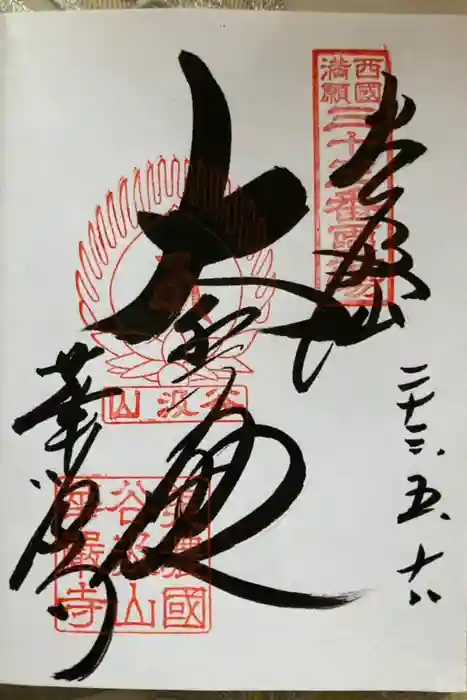 西國
満願
三十三番霊場
谷汲山
二十三、五、十八
大悲殿
谷汲山
美濃國
谷汲山
華嚴寺
華厳寺